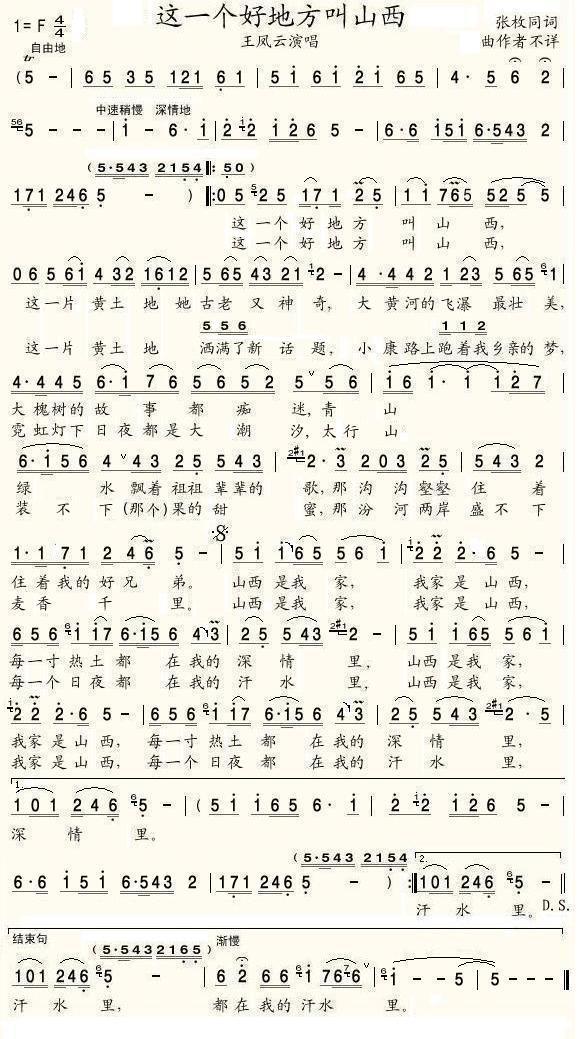 这一个好地方叫山西
1= F 4/4
张枚同词
自由地
王凤云演唱
曲作者不详
(5 - | 6 5 3 5 121 6 1 | 5 1 6 1 2 1 6 5 | 4· 5 6 2 |
中速稍慢 深情地
56 5 - - - | 1 - 6· 1 | 2 2 1 2 6 5 - | 6·6 151 6·543 2 |
(5·543 2154 :50)
171 246 5 - ) |: 0 5 5 25 17 1 25 | 1 1 765 525 5 |
这一个好地方 叫山西,
这一个好地方 叫山西,
0 6 5 61 4 32 1612 | 5 65 43 21 1 2 - | 4 ·4 42 1 23 5 65 6 1 |
这一片 黄土 地她古老 又 神 奇, 大 黄河的飞瀑 最壮 美,
5 5 6
1 1 2
这一片 黄土 地 洒满了新 话 题, 小 康 路上跑着我乡亲的 梦,
4·4 45 6·1 76 56 52 5 ˅ 56 | 16 1·1 127 |
大 槐树的 故 事 都 痴 迷, 青 山
霓 虹灯下 日夜 都是大 潮 汐, 太行 山
6·156 4 ˅ 43 25 543 | 2#1 2· 3 203 25 | 543 2 |
绿 水 飘着 祖祖 辈辈的 歌, 那 沟 沟 壑壑 住 着
装 不 下 (那个)果的 甜 蜜, 那 汾 河 两岸 盛 不 下
1·1 71 246 5 - | 51 165 561 | 1 2 2 2·6 5 - |
住着我的好兄 弟。 山西 是我 家, 我家 是 山西,
麦香 千 里。 山西 是我 家, 我家 是 山西,
656 6 1 17 6·156 43 | 25 543 2#1 2 - | 51 165 561 |
每一寸 热土 都 在我的 深 情 里, 山西 是我 家,
每一个 日夜 都 在我的 汗 水 里, 山西 是我 家,
1 2 2 2·6 5 - | 656 6 1 17 6·156 43 | 25 543 2#1 2 · 5 |
我家 是 山西, 每一寸 热土 都 在我的 深 情 里,
我家 是 山西, 每一个 日夜 都 在我的 汗 水 里,
1.
101 246 6 5 - | (51 165 6· 1 | 2 1 2 126 5 - |
深 情 里。
(5·543 2154 2.
6·6 151 6·543 2 | 171 246 5 - ) :|| 101 246 6 5 - ||
汗 水 里。 D.S.
结束句
(5·543 2165)
渐慢
101 246 6 5 - | 6 2 66 6 1 767 6 ˅ | 6 1 - - 5 | 5 - - - ||
汗 水 里, 都 在我的汗水 里。